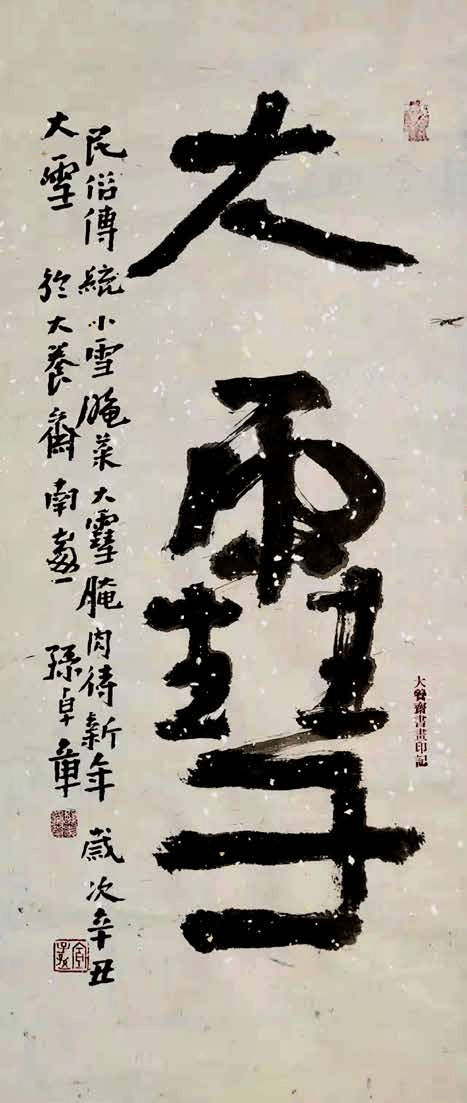 大䨮
大養齋書畫印記
民俗傳統小雪腌菜大䨮腌肉待新年 歲次辛丑
大雪 於大養齋南窗 孫卓章